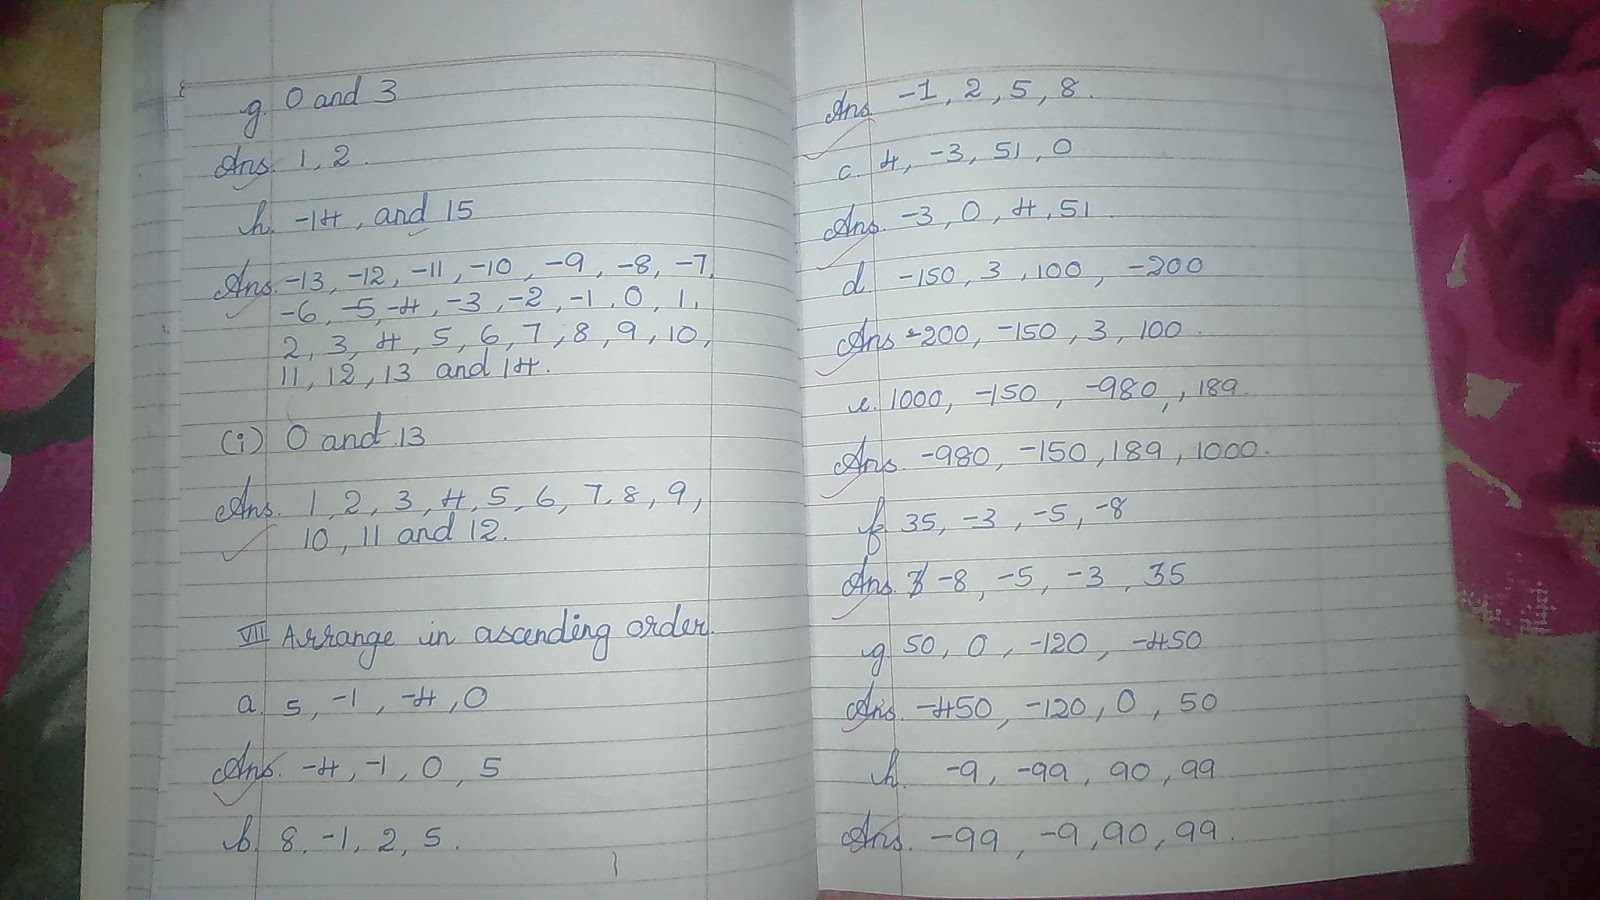 g. 0 and 3
Ans. 1, 2.
h. -14, and 15
Ans. -13, -12, -11, -10, -9, -8, -7,
-6, -5, -4, -3, -2, -1, 0, 1,
2, 3, 4, 5, 6, 7, 8, 9, 10,
11, 12, 13 and 14.
(i) 0 and 13
Ans. 1, 2, 3, 4, 5, 6, 7, 8, 9,
10, 11 and 12.
VII Arrange in ascending order.
a. 5, -1, -4, 0
Ans. -4, -1, 0, 5
b. 8, -1, 2, 5.
Ans. -1, 2, 5, 8.
c. 4, -3, 51, 0
Ans. -3, 0, 4, 51.
d. -150, 3, 100, -200
Ans -200, -150, 3, 100.
e. 1000, -150, -980, 189.
Ans. -980, -150, 189, 1000.
f. 35, -3, -5, -8
Ans. -8, -5, -3, 35
g. 50, 0, -120, -450
Ans. -450, -120, 0, 50
h. -9, -99, 90, 99
Ans. -99, -9, 90, 99.